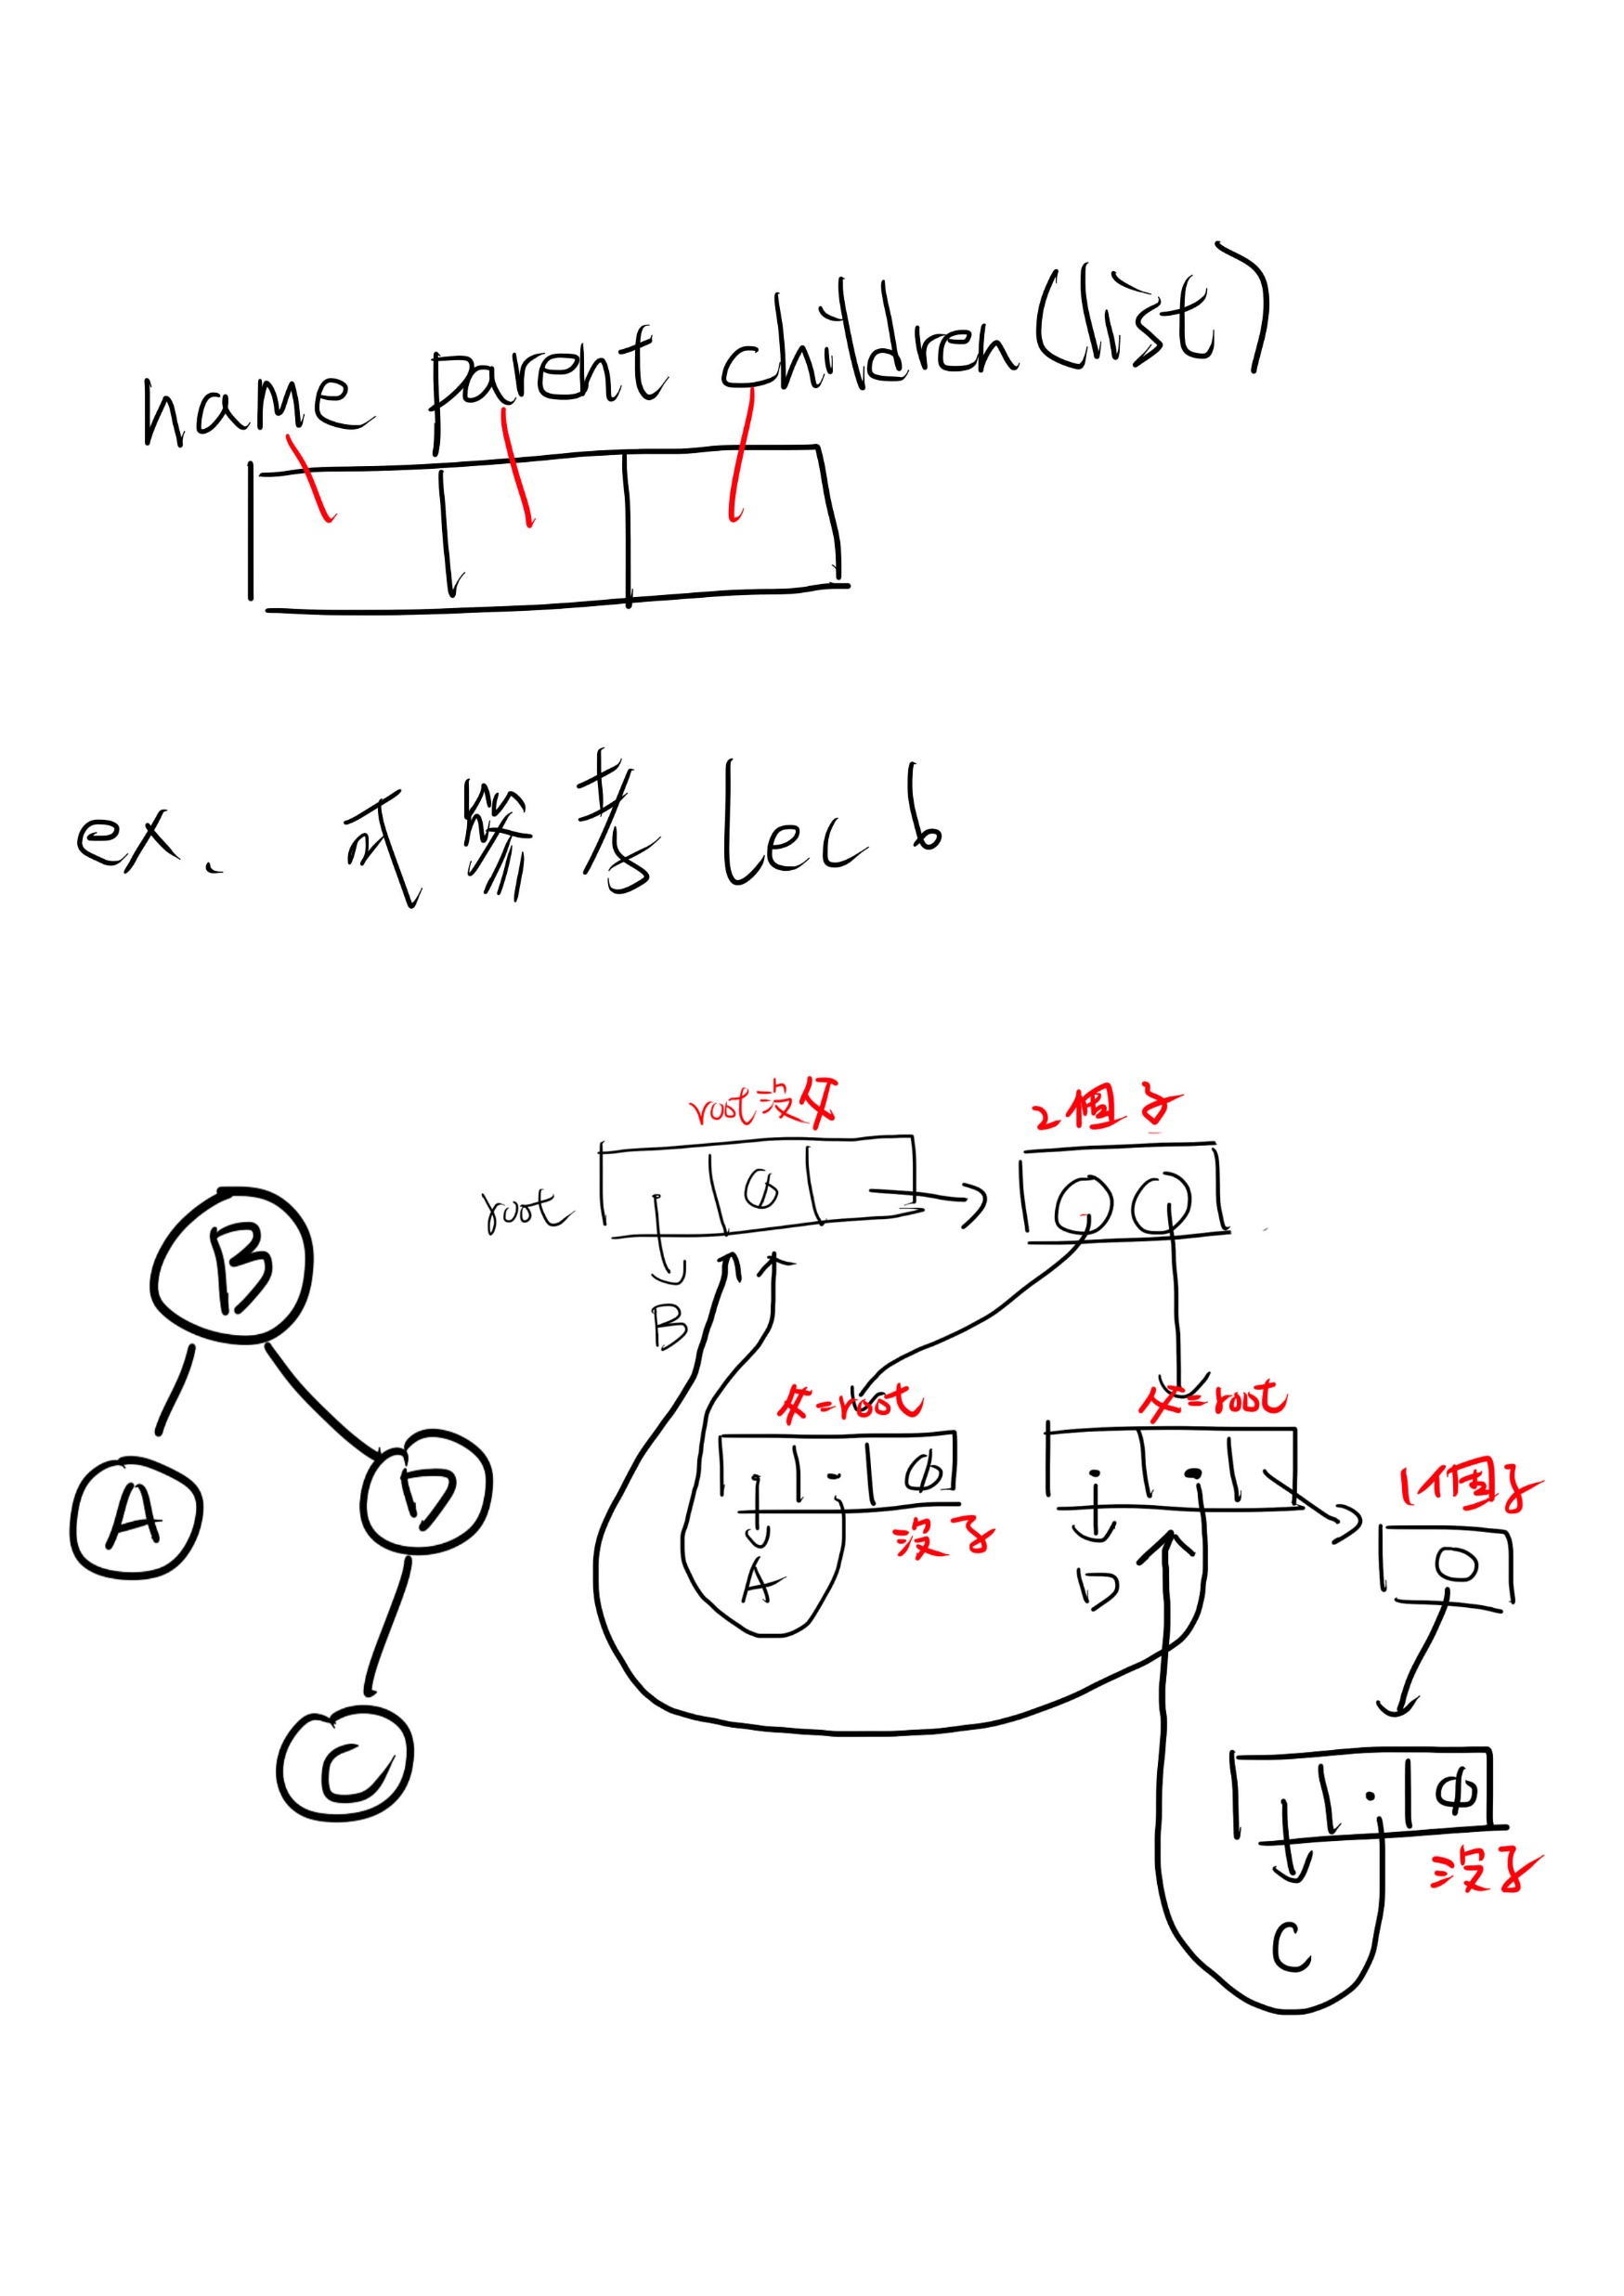 name parent children(list)
ex. 可參考 lec 6
root沒父
2個子
root
ø
B
B
父=root
父=root
ø
A
D
沒子
1個子
A
D
C
ø
沒子
C